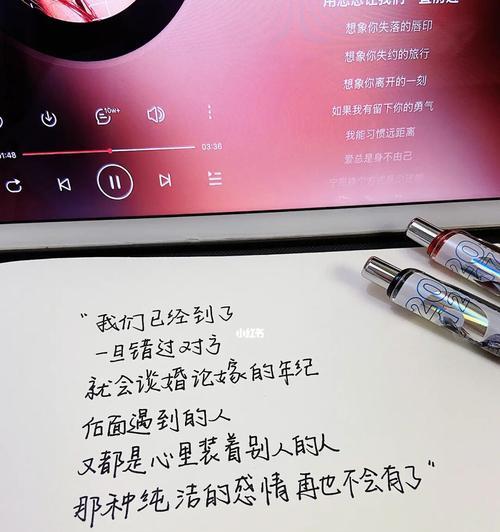 想象你失落的唇印
想象你失约的旅行
想象你离开的一刻
如果我有留下你的勇气
我能习惯远距离
爱总是身不由己
10w+
01:48
03:36
2022
2022
小红书
“我们已经到了
一旦错过对方
就会谈婚论嫁的年纪
后面遇到的人
又都是心里装着别人的人
那种纯洁的感情再也不会有了”